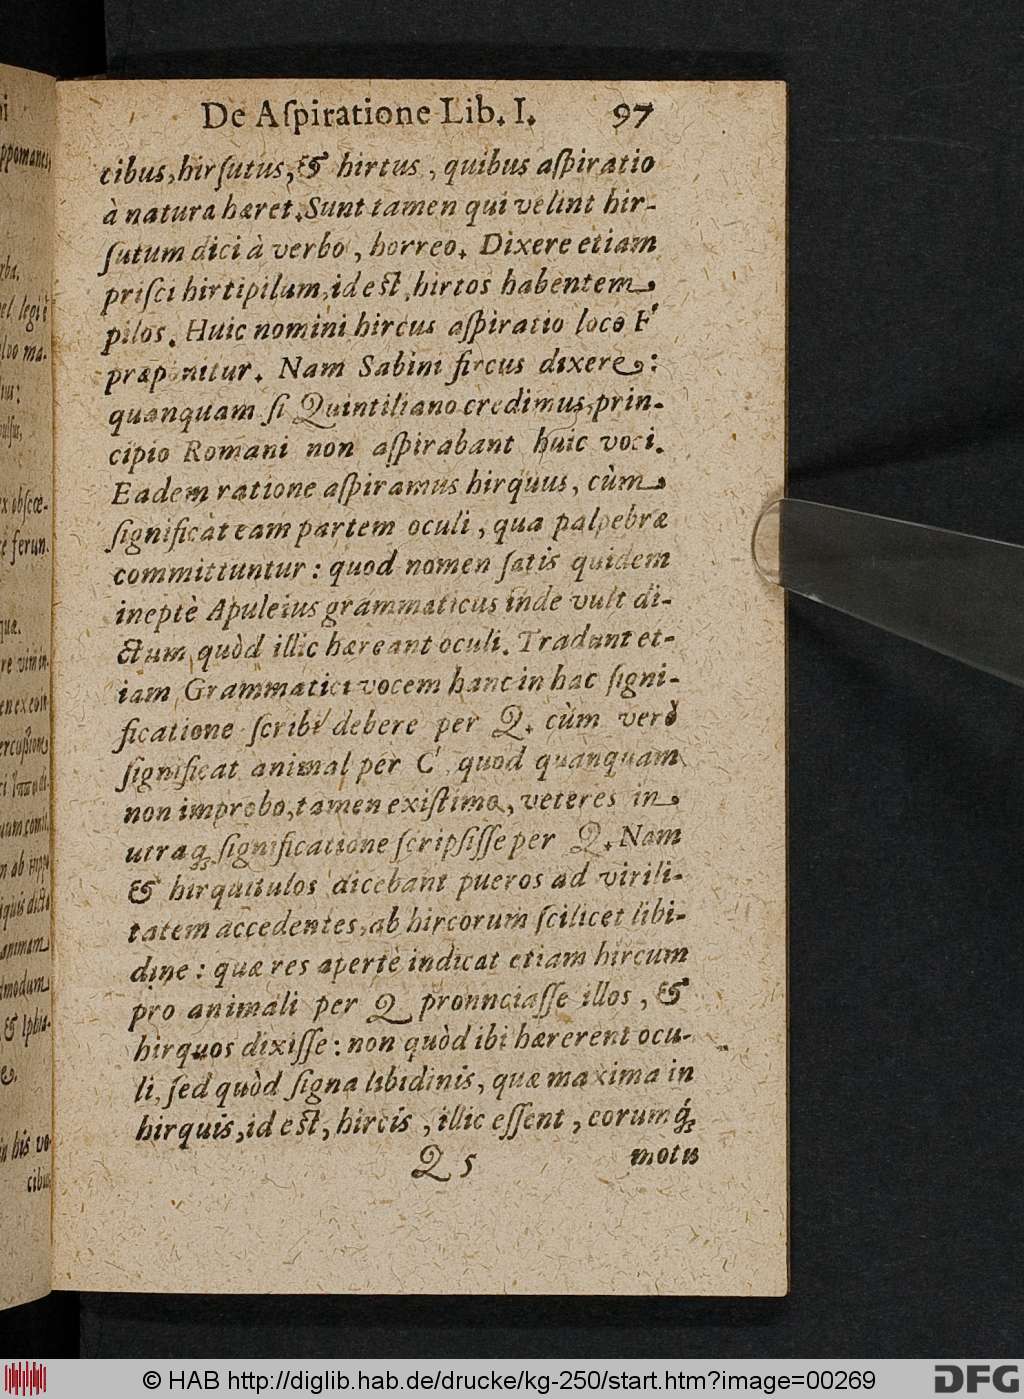 De Aſpiratione Lib. I. 97
cibus, hirſutus, & hirtus, quibus aſpiratio
à natura hæret. Sunt tamen qui velint hir-
ſutum dici à verbo, horreo. Dixere etiam
priſci hirtipilum, id eſt, hirtos habentem
pilos. Huic nomini hircus aſpiratio loco F
præponitur. Nam Sabini fircus dixere:
quanquam ſi Quintiliano credimus, prin-
cipio Romani non aſpirabant huic voci.
Eadem ratione aſpiramus hirquus, cùm
ſignificat eam partem oculi, qua palpebræ
committuntur: quod nomen ſatis quidem
ineptè Apuleius grammaticus inde vult di-
ctum, quòd illic hæreant oculi. Tradunt et-
iam Grammatici vocem hanc in hac ſigni-
ficatione ſcribi debere per Q. cùm verò
ſignificat animal per C quod quanquam
non improbo, tamen exiſtimo, veteres in
utraq; ſignificatione ſcripſiſſe per Q. Nam
& hirquitulos dicebant pueros ad virili-
tatem accedentes, ab hircorum ſcilicet libi-
dine: quæ res apertè indicat etiam hircum
pro animali per Q pronnciaſſe illos, &
hirquos dixiſſe: non quòd ibi hærerent ocu-
li, ſed quòd ſigna libidinis, quæ maxima in
hirquis, id eſt, hircis, illic eſſent, eorumq́;
Q 5 motus
© HAB http://diglib.hab.de/drucke/kg-250/start.htm?image=00269
DFG